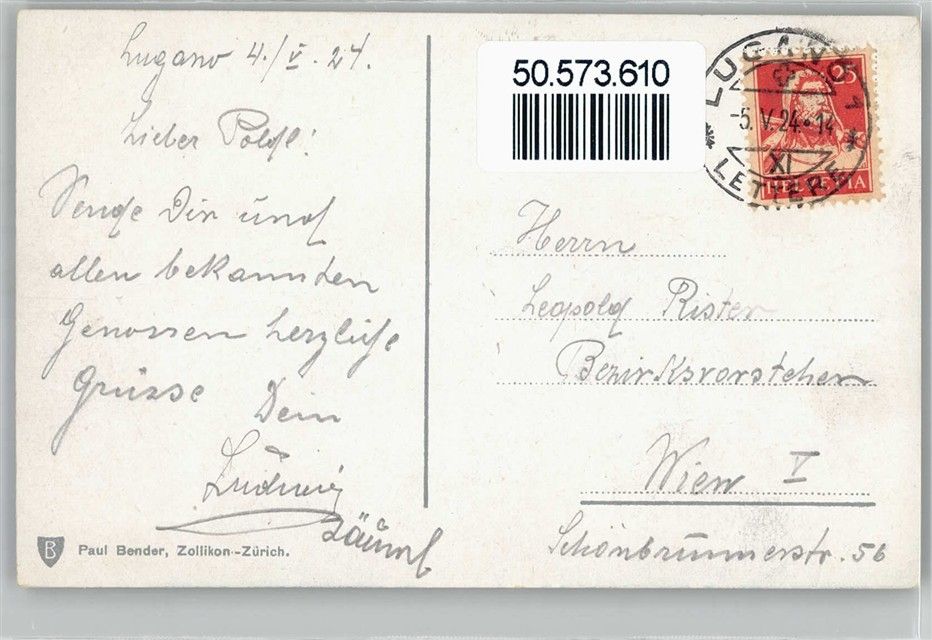 Lugano 4./V. 24.
Lieber Poldl!
Sende Dir und
allen bekannten
Genossen herzliche
Grüsse Dein
Ludwig
Paul Bender, Zollikon-Zürich.
B
50.573.610
LUGANO 1
-5.V.24.-14
XI
LETTERE
25
HELVETIA
Herrn
Leopold Rister
Bezirksvorsteher
Wien V
Schönbrunnerstr. 56